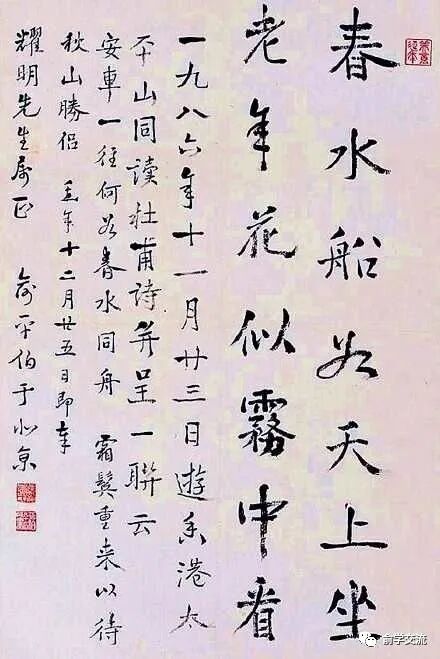 春水船如天上坐
老年花似霧中看
一九八六年十一月廿三日遊香港太
平山同讀杜甫詩并呈一聯云
安車一往何如春水同舟 霜鬢重来以待
秋山勝侶 年十二月廿五日即奉
耀明先生属正 俞平伯于北京
俞学交流